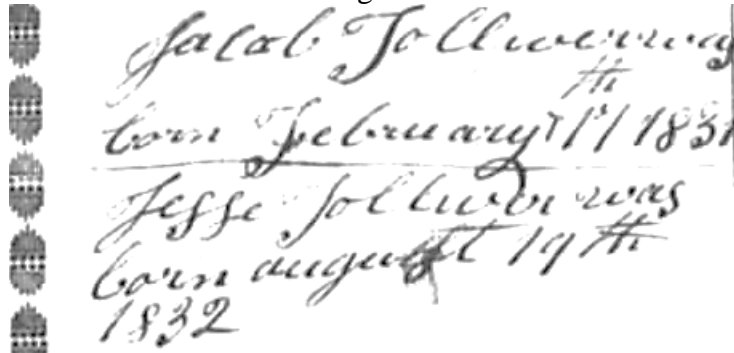 Jacob Tolliver was
th
born February 17 1831
Jesse Tolliver was
born august 19th
1832